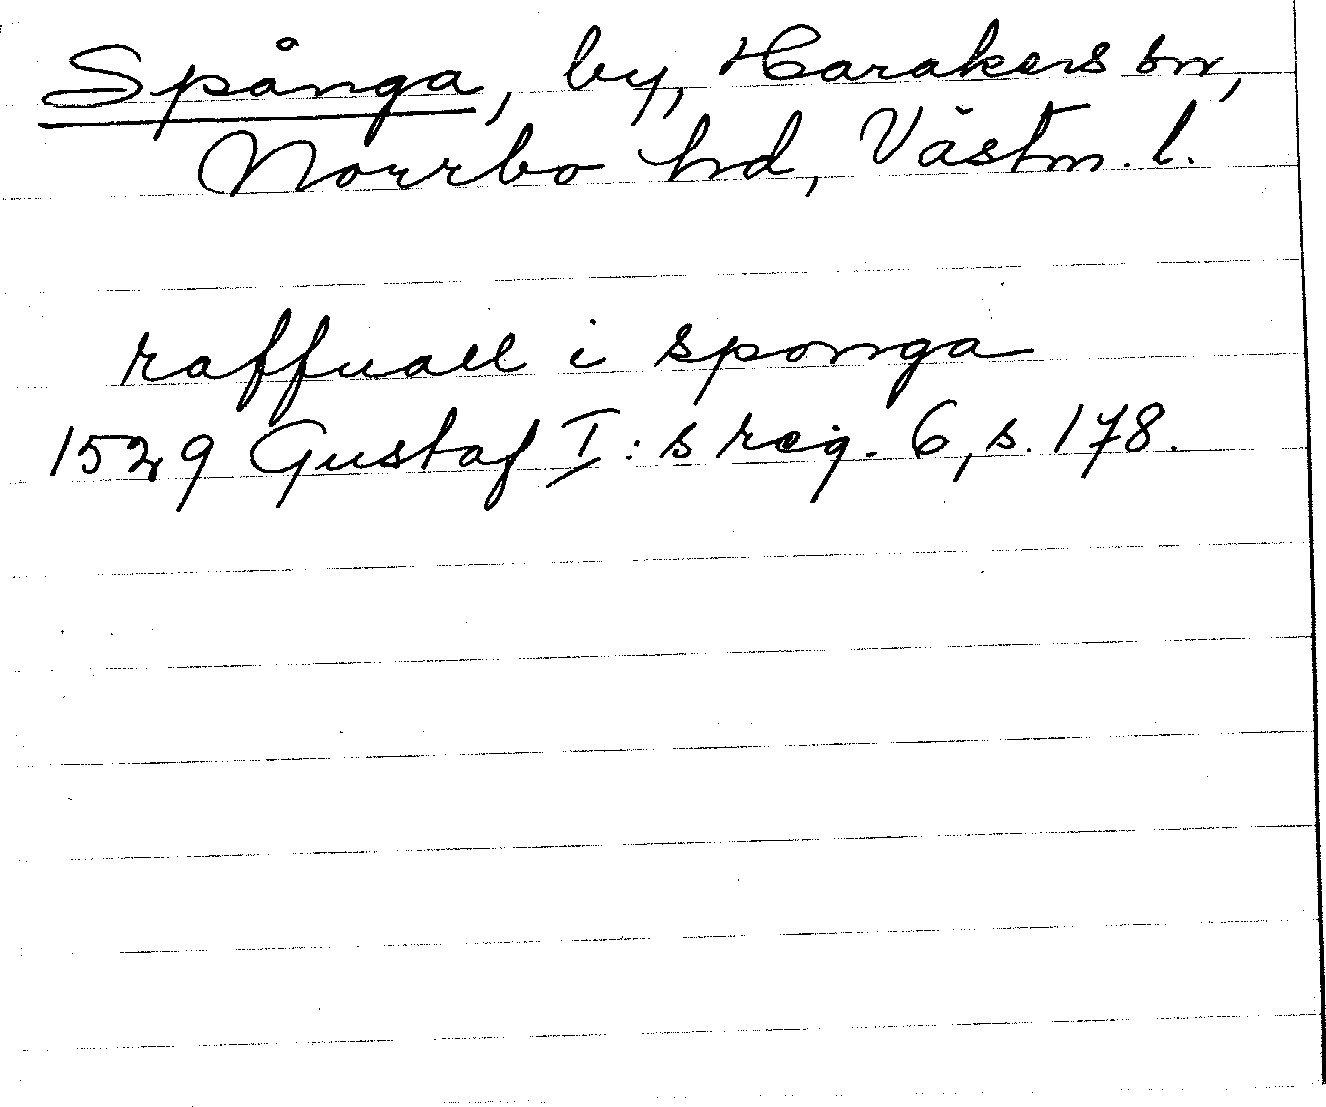 Spånga, by, Harakers sn,
Norrbo hd, Västm. l.
raffuall i sponga
1529 Gustaf I:s reg. 6, s. 178.